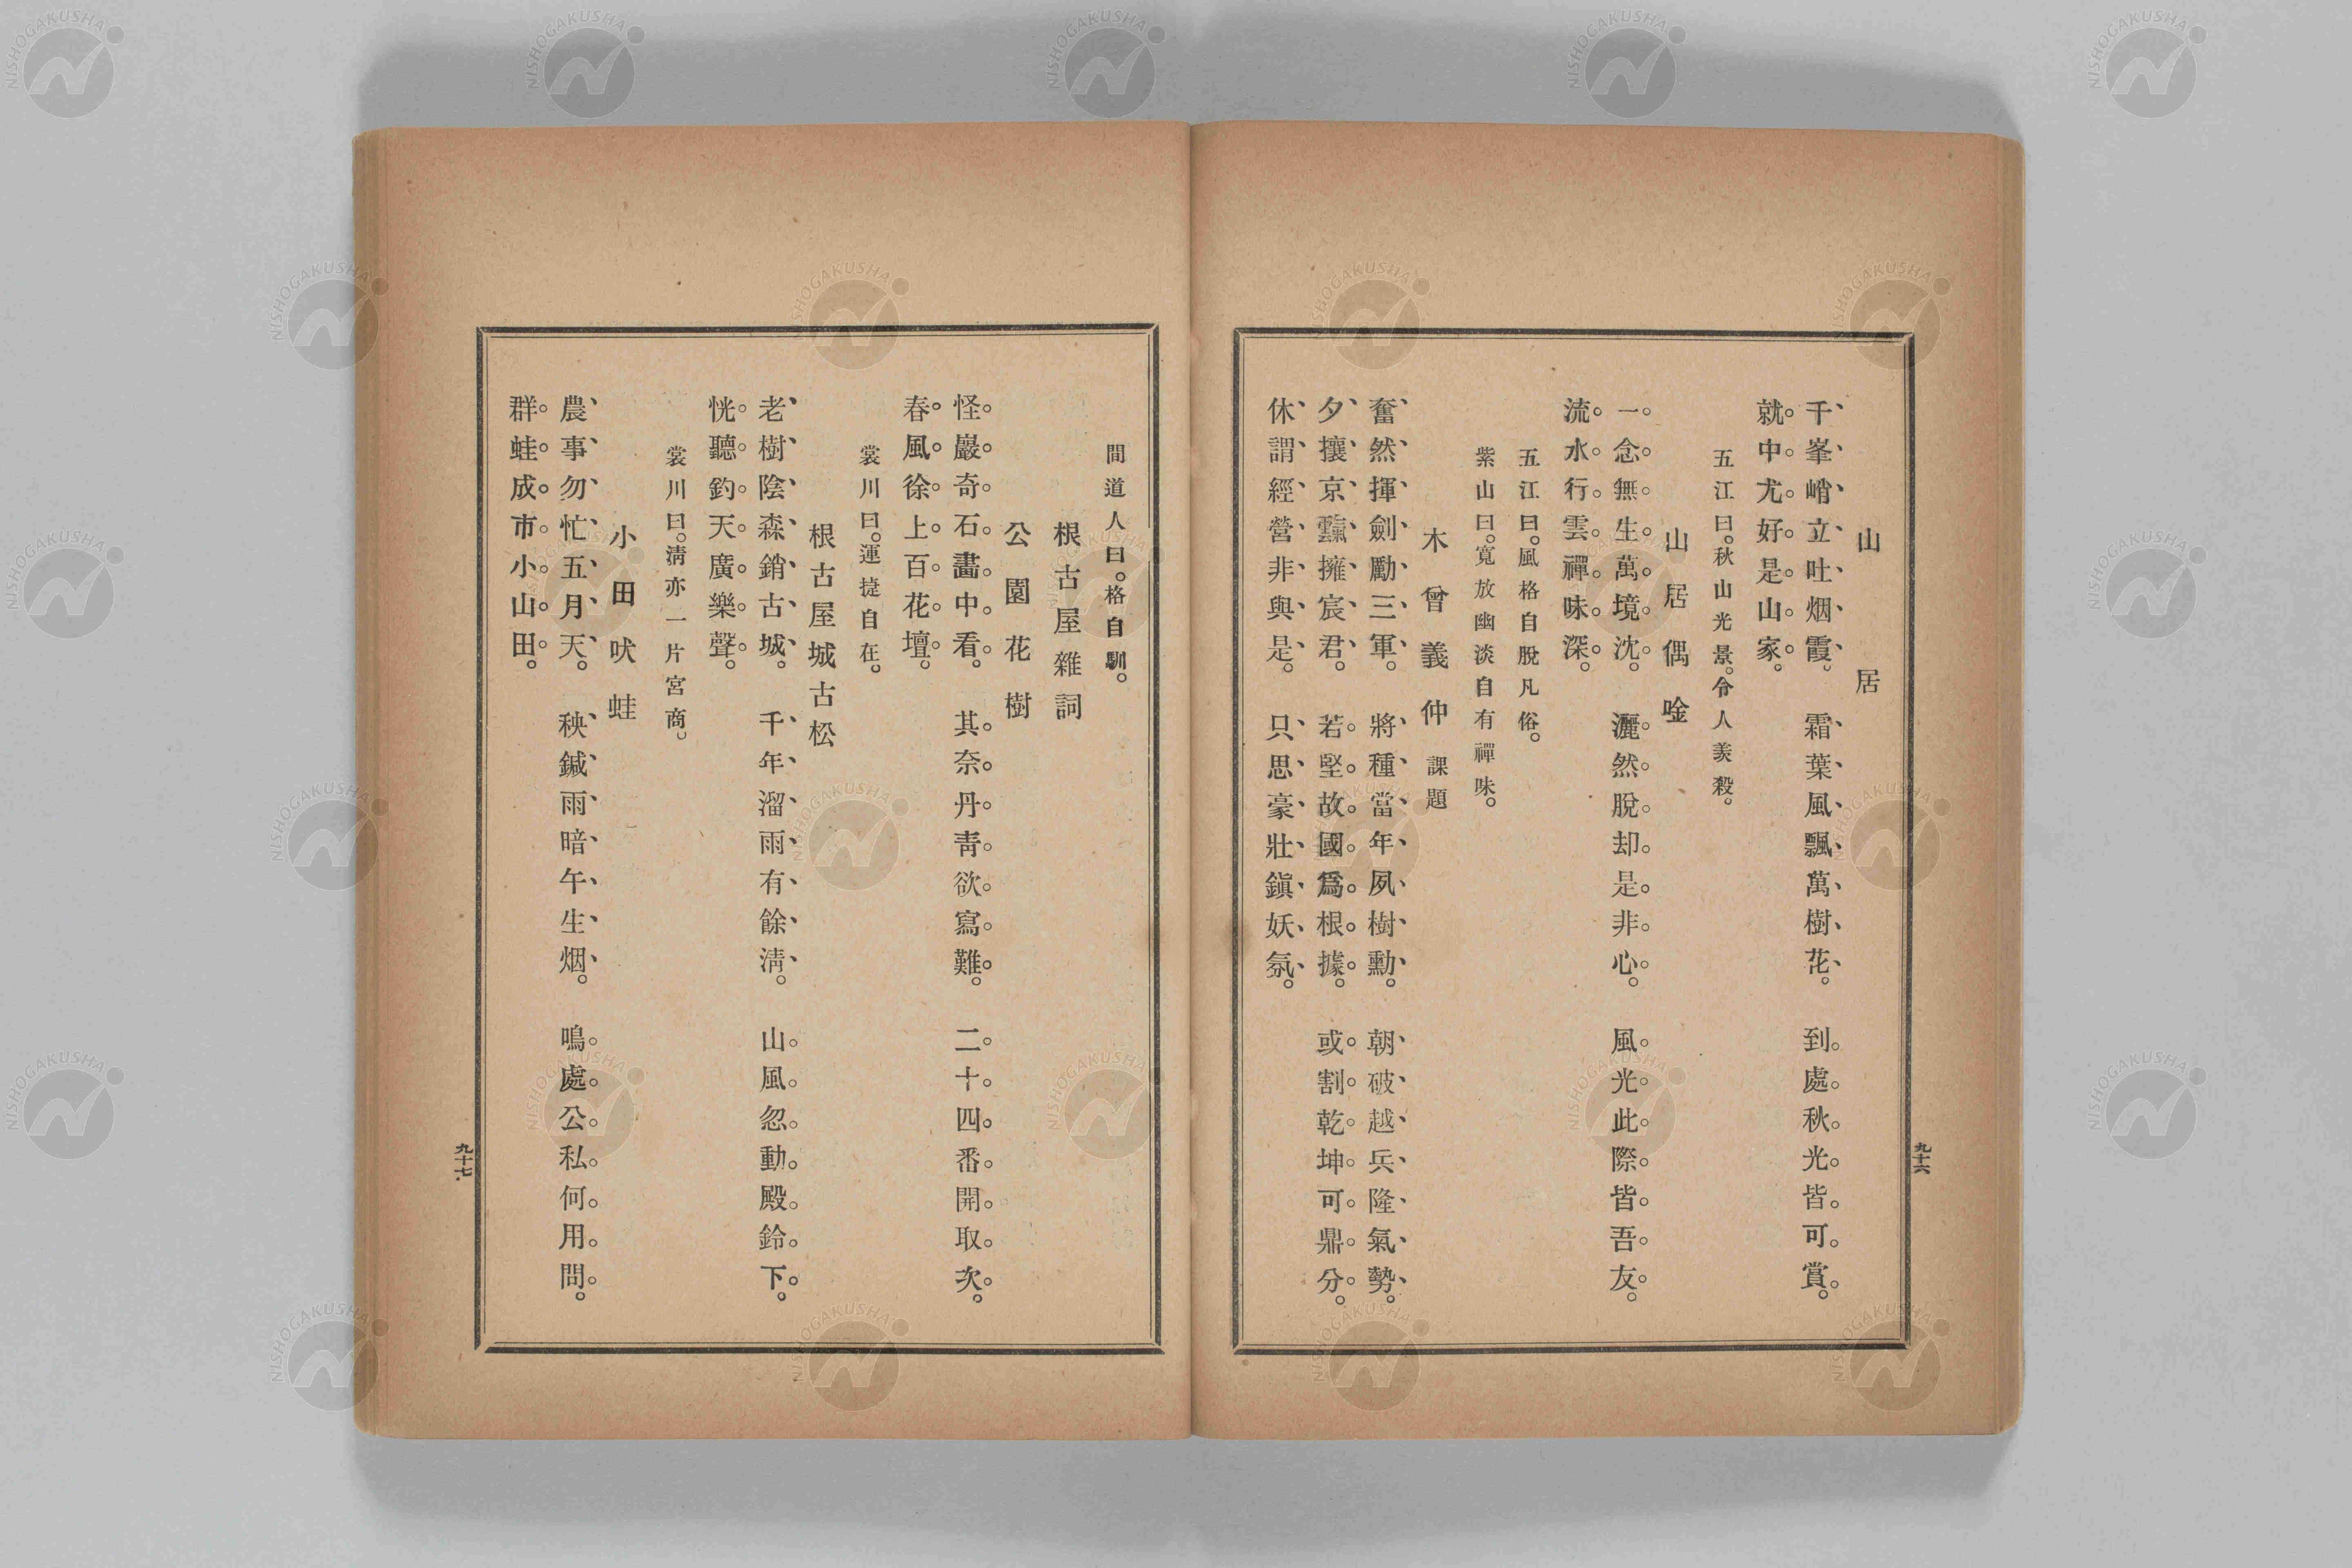 山居
千峯峭立吐烟霞。霜葉風飄萬樹花。到處秋光皆可賞。
就中尤好是山家。
五江曰。秋山光景。令人羨殺。
山居偶唫
一念無生萬境沈。灑然脫却是非心。風光此際皆吾友。
流水行雲禪味深。
五江曰。風格自脫凡俗。
紫山曰。寬放幽淡自有禪味。
木曾義仲 課題
奮然揮劍勵三軍。將種當年夙樹勳。朝破越兵隆氣勢。
夕攘京蠹擁宸君。若堅故國爲根據。或割乾坤可鼎分。
休謂經營非與是。只思豪壯鎭妖氛。
九十六
間道人曰。格自馴。
根古屋雜詞
公園花樹
怪巖奇石畵中看。其奈丹靑欲寫難。二十四番開取次。
春風徐上百花壇。
裳川曰。運捷自在。
根古屋城古松
老樹陰森銷古城。千年溜雨有餘淸。山風忽動殿鈴下。
恍聽鈞天廣樂聲。
裳川曰。淸亦一片宮商。
小田吠蛙
農事勿忙五月天。秧鍼雨暗午生烟。鳴處公私何用問。
群蛙成市小山田。
九十七
NISHOGAKUSHA